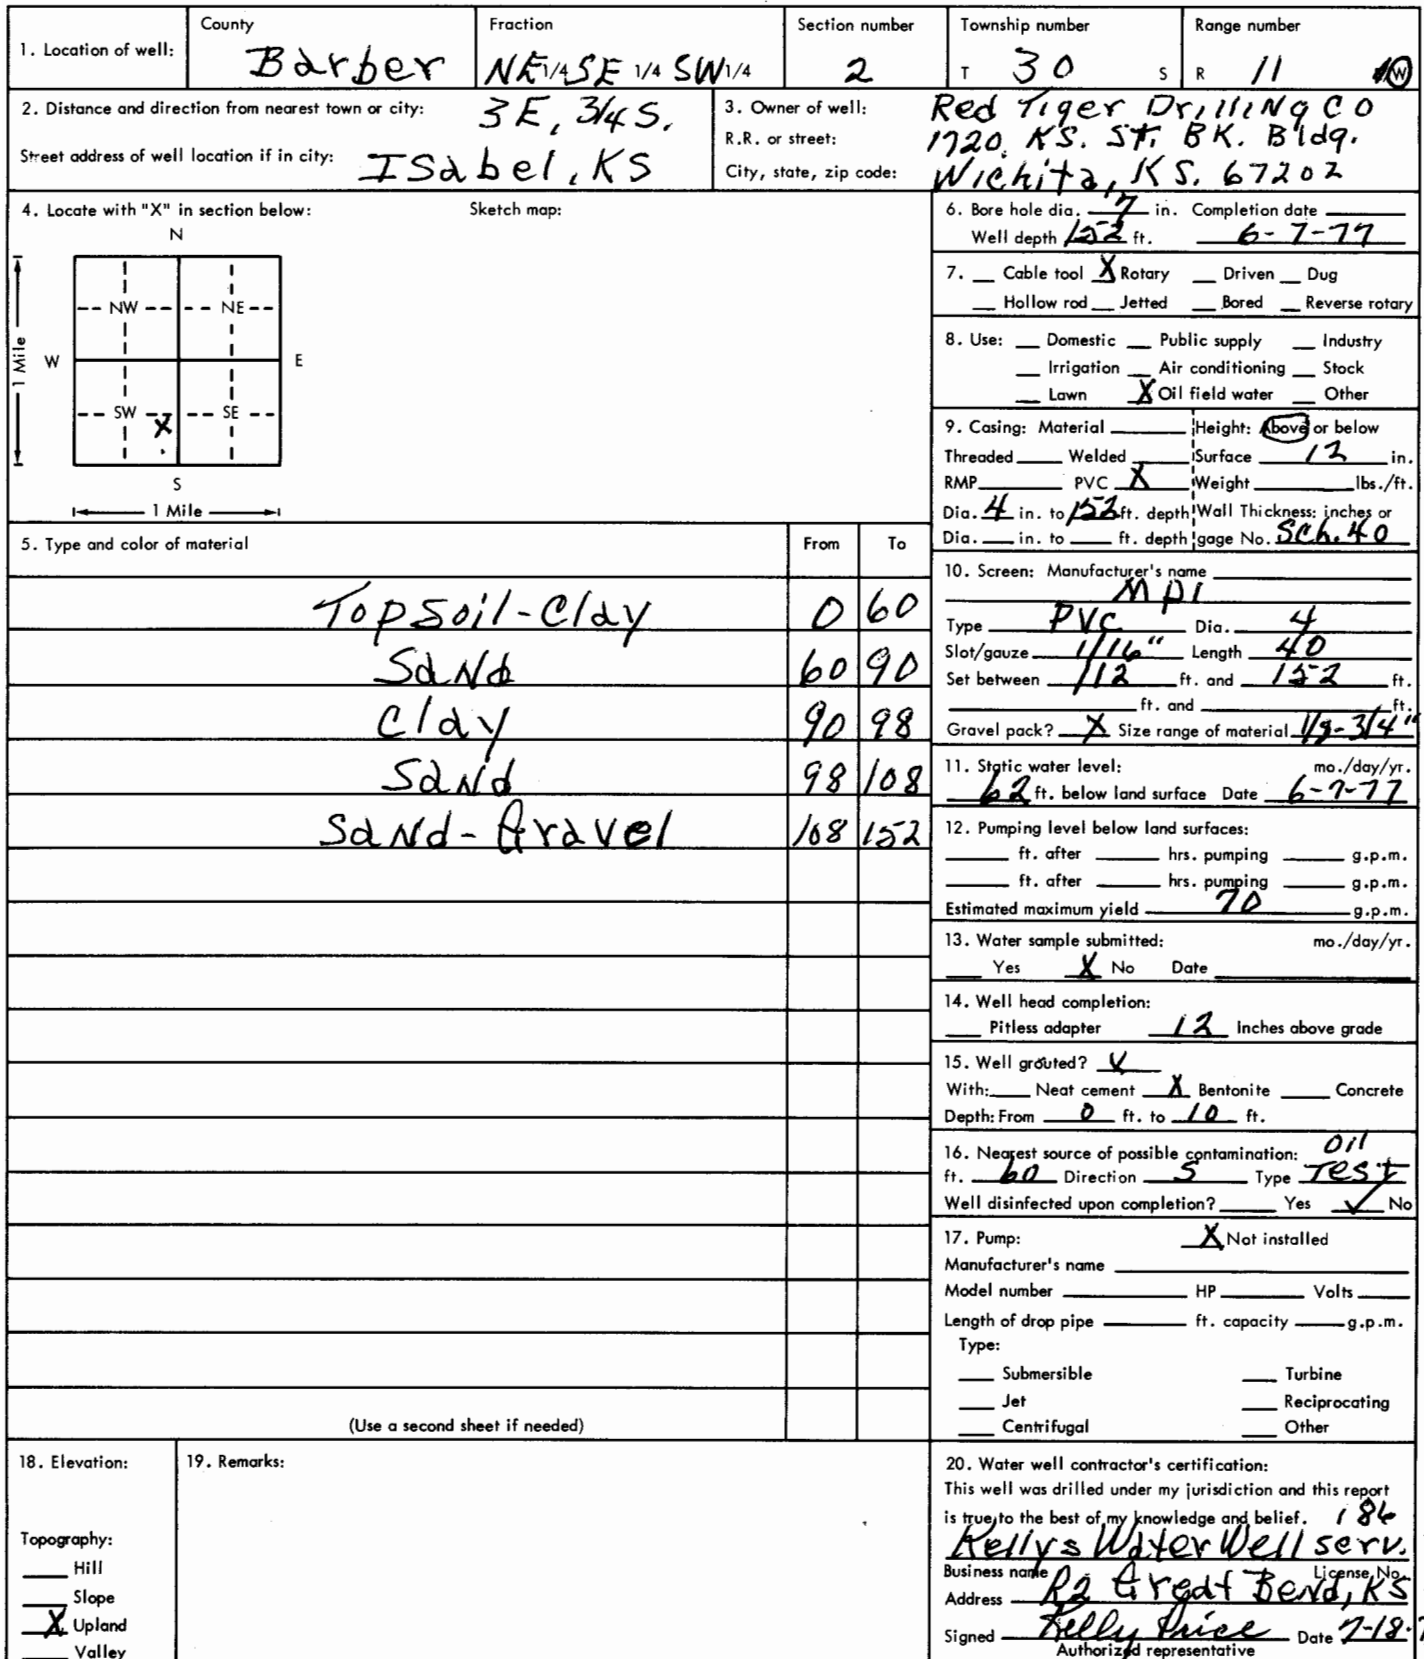 1. Location of well:
County
Barber
Fraction
NE 1/4 SE 1/4 SW 1/4
Section number
2
Township number
T 30 S
Range number
R 11 W
2. Distance and direction from nearest town or city: 3 E, 3/4 S.
Street address of well location if in city: ISabel, KS
3. Owner of well: Red Tiger Drilling Co
R.R. or street: 1720 KS. St. BK. Bldg.
City, state, zip code: Wichita, KS. 67202
4. Locate with "X" in section below:
Sketch map:
N
NW NE
W E
1 Mile
SW X SE
S
1 Mile
5. Type and color of material From To
Topsoil-Clay 0 60
Sand 60 90
Clay 90 98
Sand 98 108
Sand-Gravel 108 152
(Use a second sheet if needed)
6. Bore hole dia. 7 in. Completion date
Well depth 152 ft. 6-7-77
7. Cable tool X Rotary Driven Dug
Hollow rod Jetted Bored Reverse rotary
8. Use: Domestic Public supply Industry
Irrigation Air conditioning Stock
Lawn X Oil field water Other
9. Casing: Material Height: Above or below
Threaded Welded Surface 12 in.
RMP PVC X Weight lbs./ft.
Dia. 4 in. to 152 ft. depth Wall Thickness: inches or
Dia. in. to ft. depth gage No. Sch. 40
10. Screen: Manufacturer's name
MPI
Type PVC Dia. 4
Slot/gauze 1/16" Length 40
Set between 112 ft. and 152 ft.
ft. and ft.
Gravel pack? X Size range of material 1/8-3/4"
11. Static water level: mo./day/yr.
62 ft. below land surface Date 6-7-77
12. Pumping level below land surfaces:
ft. after hrs. pumping g.p.m.
ft. after hrs. pumping g.p.m.
Estimated maximum yield 70 g.p.m.
13. Water sample submitted: mo./day/yr.
Yes X No Date
14. Well head completion:
Pitless adapter 12 Inches above grade
15. Well grouted? ✓
With: Neat cement X Bentonite Concrete
Depth: From 0 ft. to 10 ft.
16. Nearest source of possible contamination: Oil
ft. 60 Direction S Type Test
Well disinfected upon completion? Yes ✓ No
17. Pump: X Not installed
Manufacturer's name
Model number HP Volts
Length of drop pipe ft. capacity g.p.m.
Type:
Submersible Turbine
Jet Reciprocating
Centrifugal Other
18. Elevation:
Topography:
Hill
Slope
X Upland
Valley
19. Remarks:
20. Water well contractor's certification:
This well was drilled under my jurisdiction and this report
is true to the best of my knowledge and belief. 186
Kellys Water Well serv.
Business name License No.
Address R2 Great Bend, KS
Signed Kelly Price Date 7-18-
Authorized representative